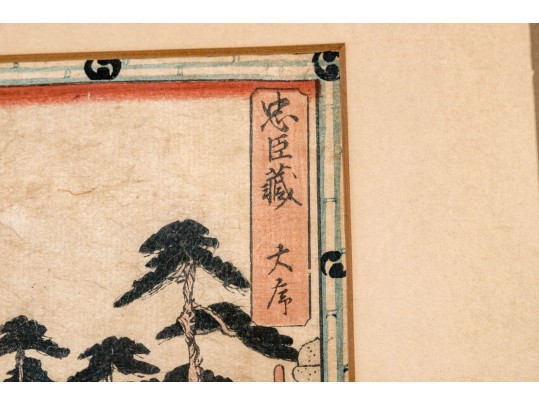 忠臣蔵 大序